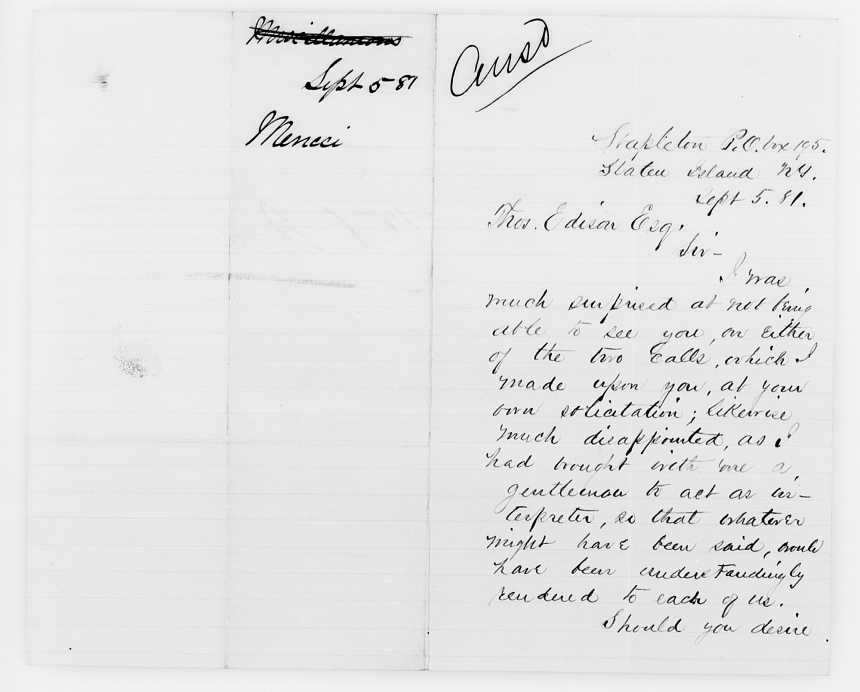 Miscellaneous
Sept 5 81
Menesi
Stapleton P.O. box 195.
Staten Island NY.
Sept 5. 81.
Thos. Edison Esq.
Sir-
I was
much surprised at not being
able to see you, on either
of the two Calls, which I
made upon you, at your
own solicitation; likewise
much disappointed, as I
had brought with me a
gentleman to act as in-
terpreter, so that whatever
might have been said, would
have been understandingly
rendered to each of us.
Should you desire